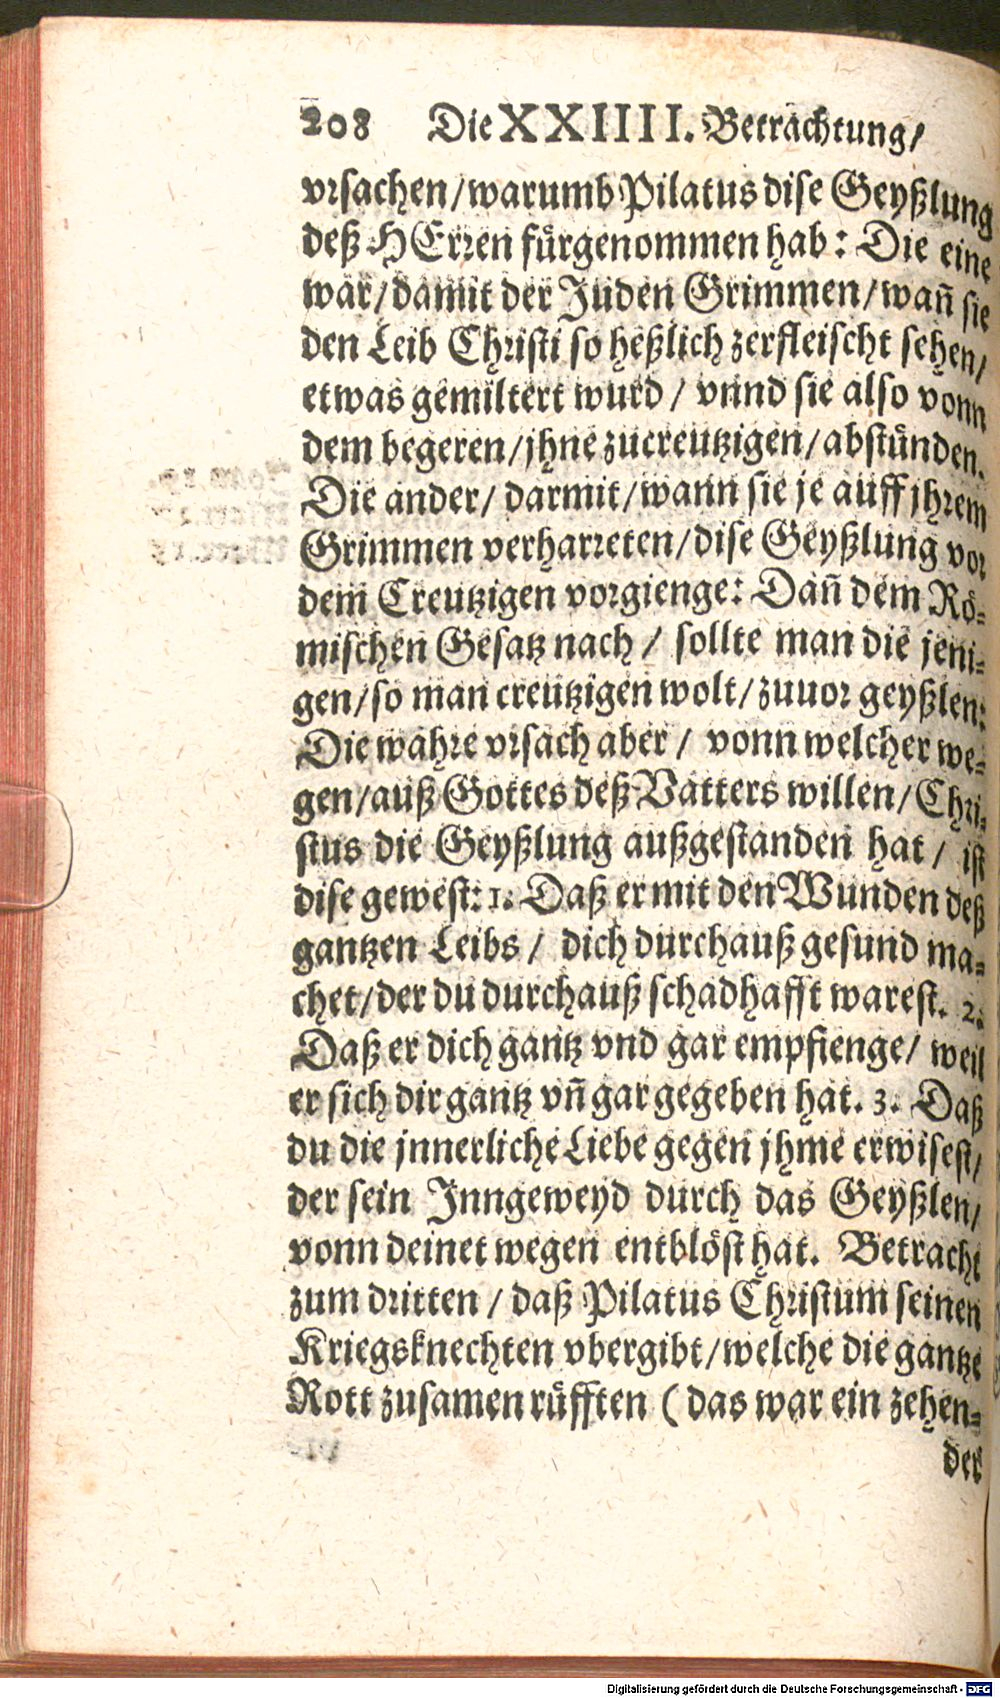 208 Die XXIIII. Betrachtung/
vrsachen/warumb Pilatus dise Geyßlung
deß HErren fürgenommen hab: Die eine
war/damit der Juden Grimmen/wañ sie
den Leib Christi so heßlich zerfleischt sehen/
etwas gemiltert wurd / vnnd sie also vonn
dem begeren/jhne zucreutzigen/abstünden.
Die ander/ darmit/wann sie je auff jhrem
Grimmen verharreten/dise Geyßlung vor
dem Creutzigen vorgienge: Dañ dem Rö-
mischen Gesatz nach / sollte man die jeni-
gen/so man creutzigen wolt/zuuor geyßlen:
Die wahre vrsach aber / vonn welcher we-
gen/auß Gottes deß Vatters willen/Chri-
stus die Geyßlung außgestanden hat / ist
dise gewest: 1. Daß er mit den Wunden deß
gantzen Leibs / dich durchauß gesund ma-
chet/der du durchauß schadhafft warest. 2.
Daß er dich gantz vnd gar empfienge/ weil
er sich dir gantz vñ gar gegeben hat. 3. Daß
du die jnnerliche Liebe gegen jhme erwisest/
der sein Inngeweyd durch das Geyßlen/
vonn deinet wegen entblöst hat. Betracht
zum dritten / daß Pilatus Christum seinen
Kriegsknechten vbergibt/welche die gantze
Rott zusamen rüfften (das war ein zehen-
der
Digitalisierung gefördert durch die Deutsche Forschungsgemeinschaft - DFG